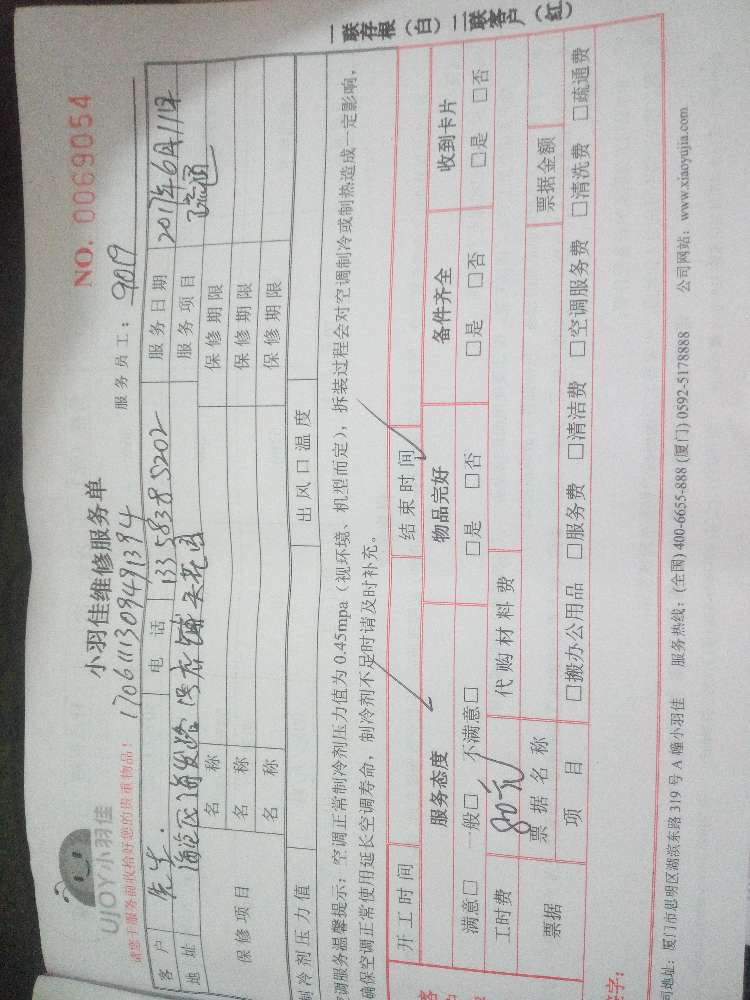 一联存根（白）二联客户（红）
UJOY小羽佳
小羽佳维修服务单
NO. 0069054
1706111309491394
请您于服务前收拾好您的贵重物品！
服务员工：9019
客户 先生. 电话 13358385202 服务日期 2017年6月11日
地址 海沧区海发路 服务项目 疏通
保修项目 名称 保修期限
名称 保修期限
名称 保修期限
制冷剂压力值 出风口温度
空调服务温馨提示：空调正常制冷剂压力值为0.45mpa（视环境、机型而定），拆装过程会对空调制冷或制热造成一定影响，
确保空调正常使用延长空调寿命，制冷剂不足时请及时补充。
开工时间 结束时间
服务态度 物品完好 备件齐全 收到卡片
满意□ 一般□ 不满意□ □是 □否 □是 □否 □是 □否
工时费 80元 代购材料费
票据 票据名称 票据金额
项目 □搬办公用品 □服务费 □清洁费 □空调服务费 □清洗费 □疏通费
字：
司地址：厦门市思明区湖滨东路319号A幢小羽佳 服务热线：(全国) 400-6655-888 (厦门) 0592-5178888 公司网站：www.xiaoyujia.com